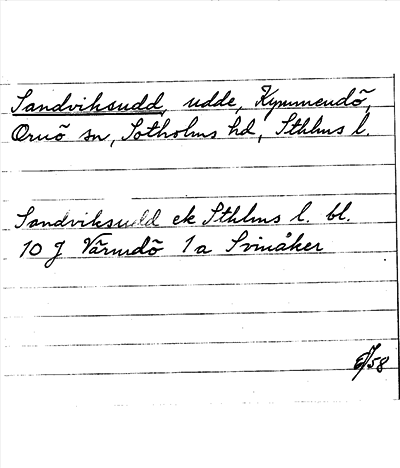 Sandviksudd, udde, Kymmendö,
Ornö sn, Sotholms hd, Sthlms l.
Sandviksudd ek Sthlms l. bl.
10 J Värmdö 1a Svinåker
/58